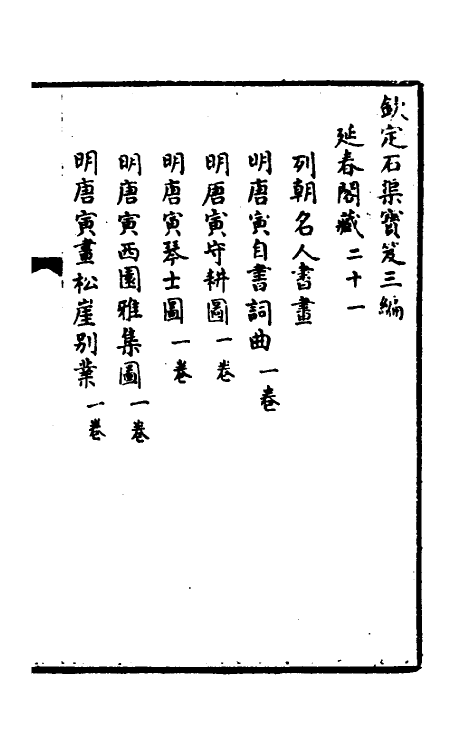 欽定石渠寶笈三編
延春閣藏二十一
列朝名人書畫
明唐寅自書詞曲一卷
明唐寅守耕圖一卷
明唐寅琴士圖一卷
明唐寅西園雅集圖一卷
明唐寅畫松崖別業一卷